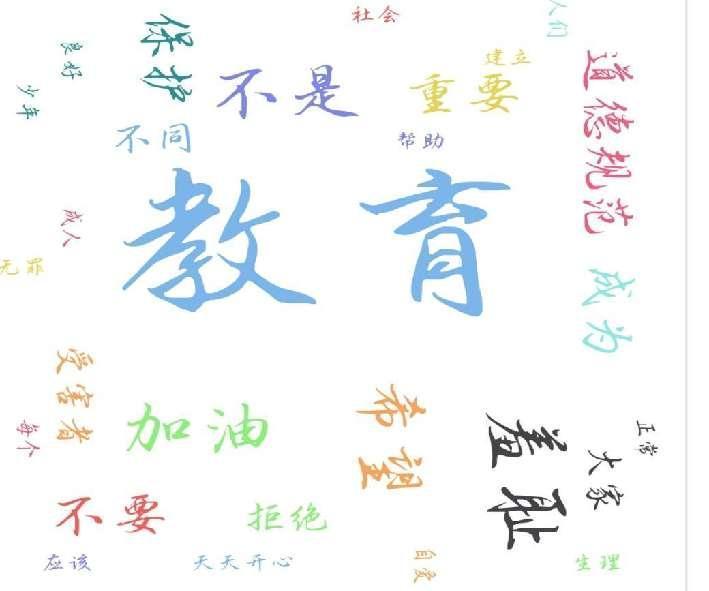 社会
人们
保护
良好
建立
道德规范
不是
重要
少年
不同
帮助
教育
成人
无罪
成为
受害者
希望
加油
羞耻
每个
正常
大家
不要
拒绝
应该
天天开心
自爱
生理